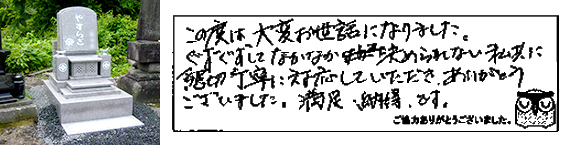 やすらぎ
この度は大変お世話になりました。
ぐずぐずしてなかなか決められない私共に
親切丁寧に対応していただき、ありがとう
ございました。満足、納得、です。
ご協力ありがとうございました。